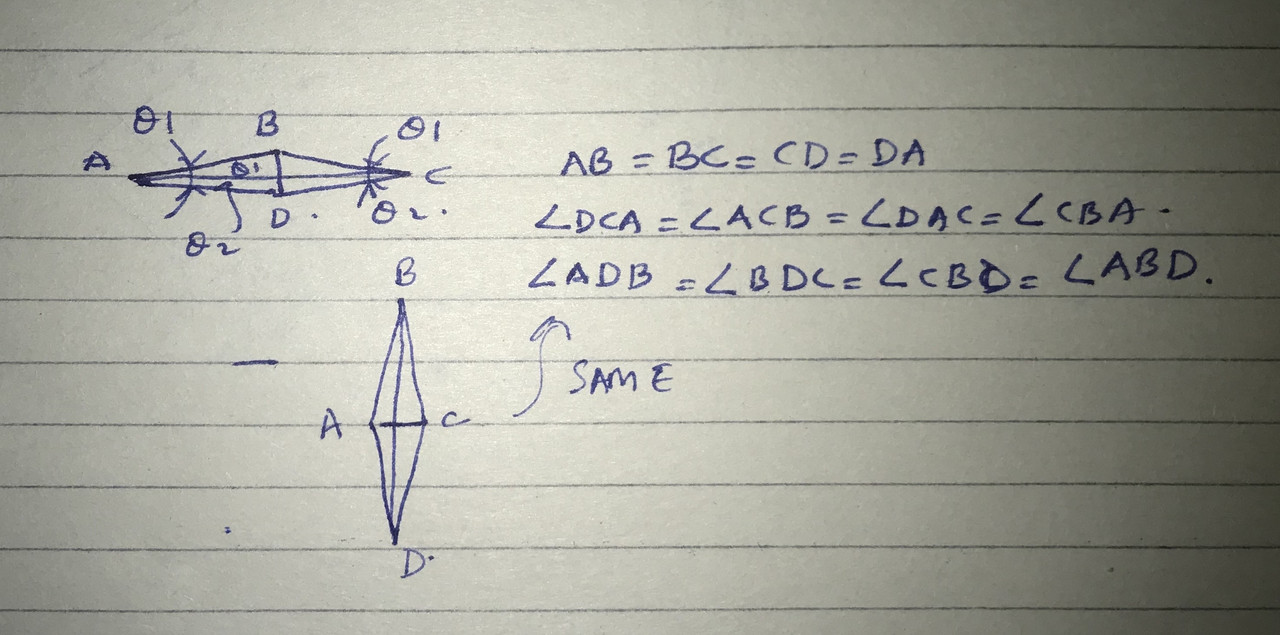 θ1 B θ1
A θ1 C
θ2 D. θ2.
AB = BC = CD = DA
∠DCA = ∠ACB = ∠DAC = ∠CBA.
∠ADB = ∠BDC = ∠CBD = ∠ABD.
B
SAME
A C
D.